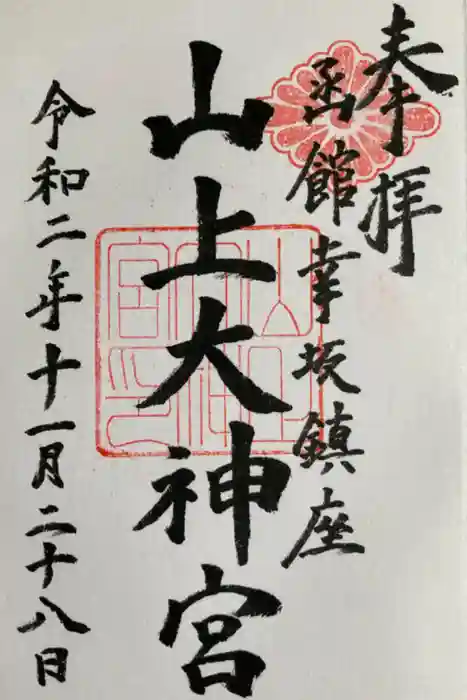 奉拝
函館幸坂鎮座
山上大神宮
令和二年十一月二十八日
山上大神宮之印